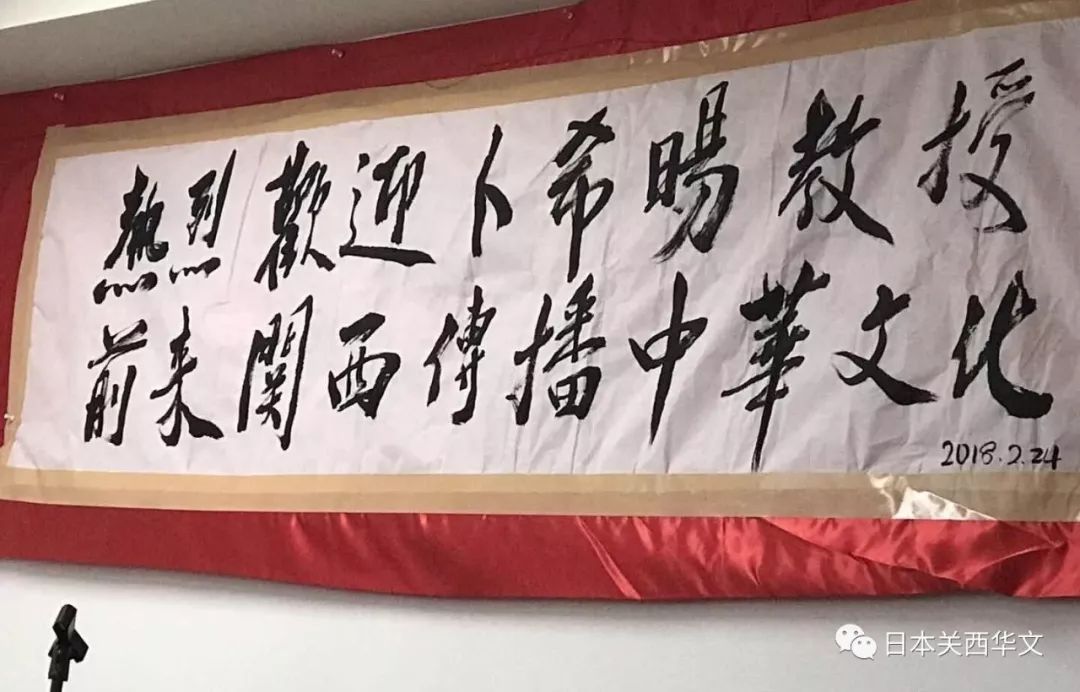 熱烈歡迎卜希暘教授
前来関西傳播中華文化
2018.2.24
日本关西华文